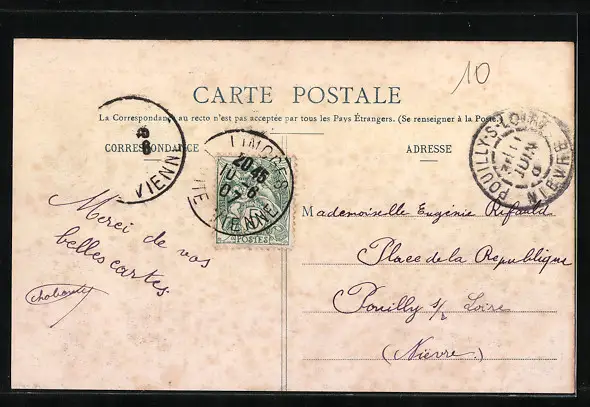 10
CARTE POSTALE
La Correspondance au recto n'est pas acceptée par tous les Pays Étrangers. (Se renseigner à la Poste.)
CORRESPONDANCE
ADRESSE
VIENNE
LIMOGES
VIENNE
POSTES
POUILLY-S-LOIRE
JUIN
NIÈVRE
Merci de vos
belles cartes
Mademoiselle Eugénie Rifauld
Place de la République
Pouilly s/ Loire
(Nièvre)